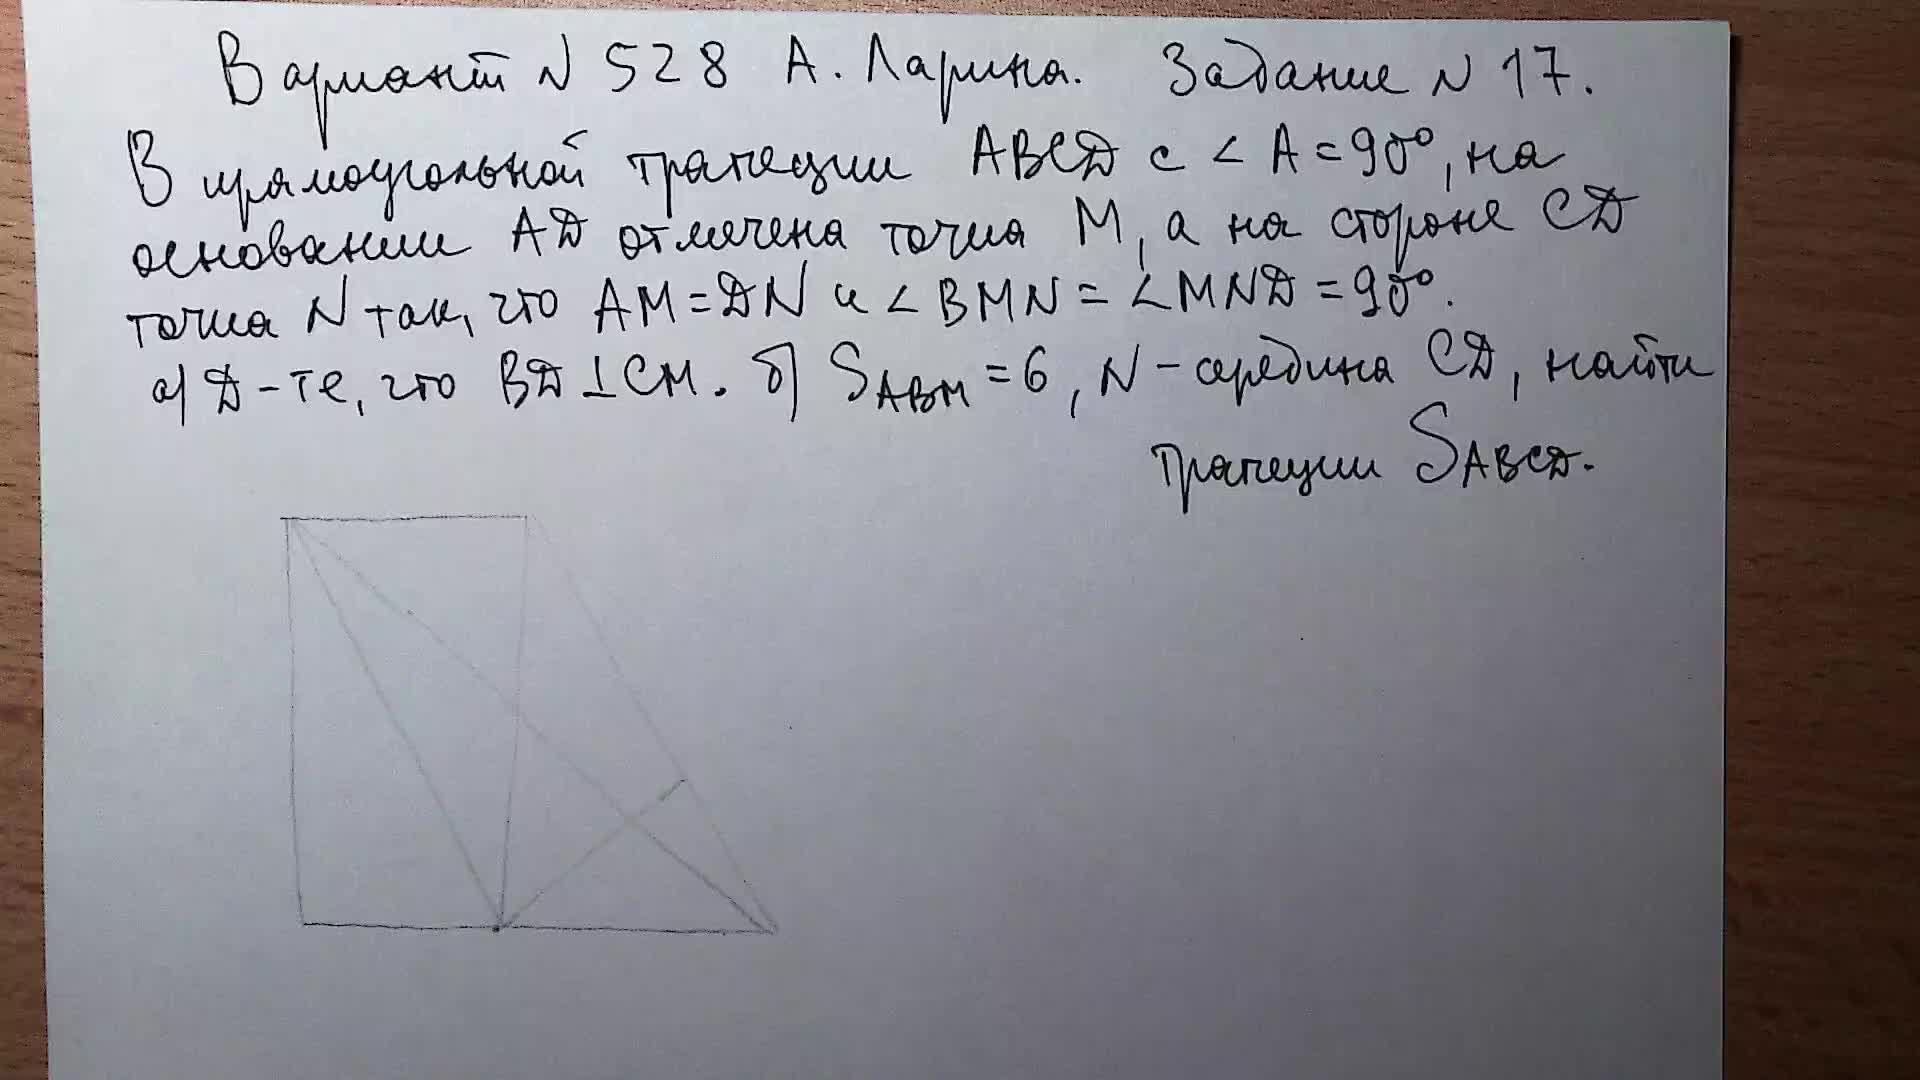 Вариант N 528 А. Ларина. Задание N 17.
В прямоугольной трапеции ABCD с ∠A=90°, на
основании AD отмечена точка M, а на стороне CD
точка N так, что AM=DN и ∠BMN=∠MND=90°.
а) Д-те, что BD⊥CM. б) S_ABM=6, N-середина CD, найти
трапеции S_ABCD.